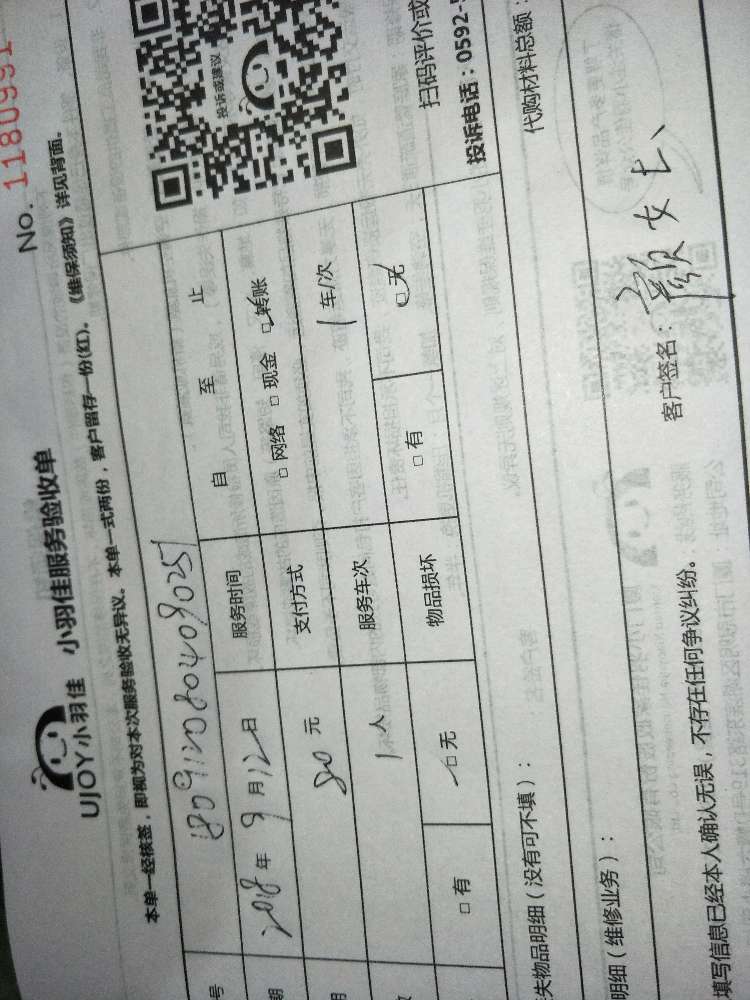 No. 1180991
UJOY小羽佳 小羽佳服务验收单
本单一经核签，即视为对本次服务验收无异议。本单一式两份，客户留存一份(红)。《维保须知》详见背面。
号 180912080409025
期 2018年9月12日 服务时间 自 至 止
用 80元 支付方式 □网络 □现金 ☑转账
1人 服务车次 1车/次
□有 ☑无 物品损坏 □有 ☑无
投诉或建议
扫码评价或
投诉电话：0592-
失物品明细（没有可不填）：
代购材料总额：
明细（维修业务）：
客户签名：颜女士
填写信息已经本人确认无误，不存在任何争议纠纷。